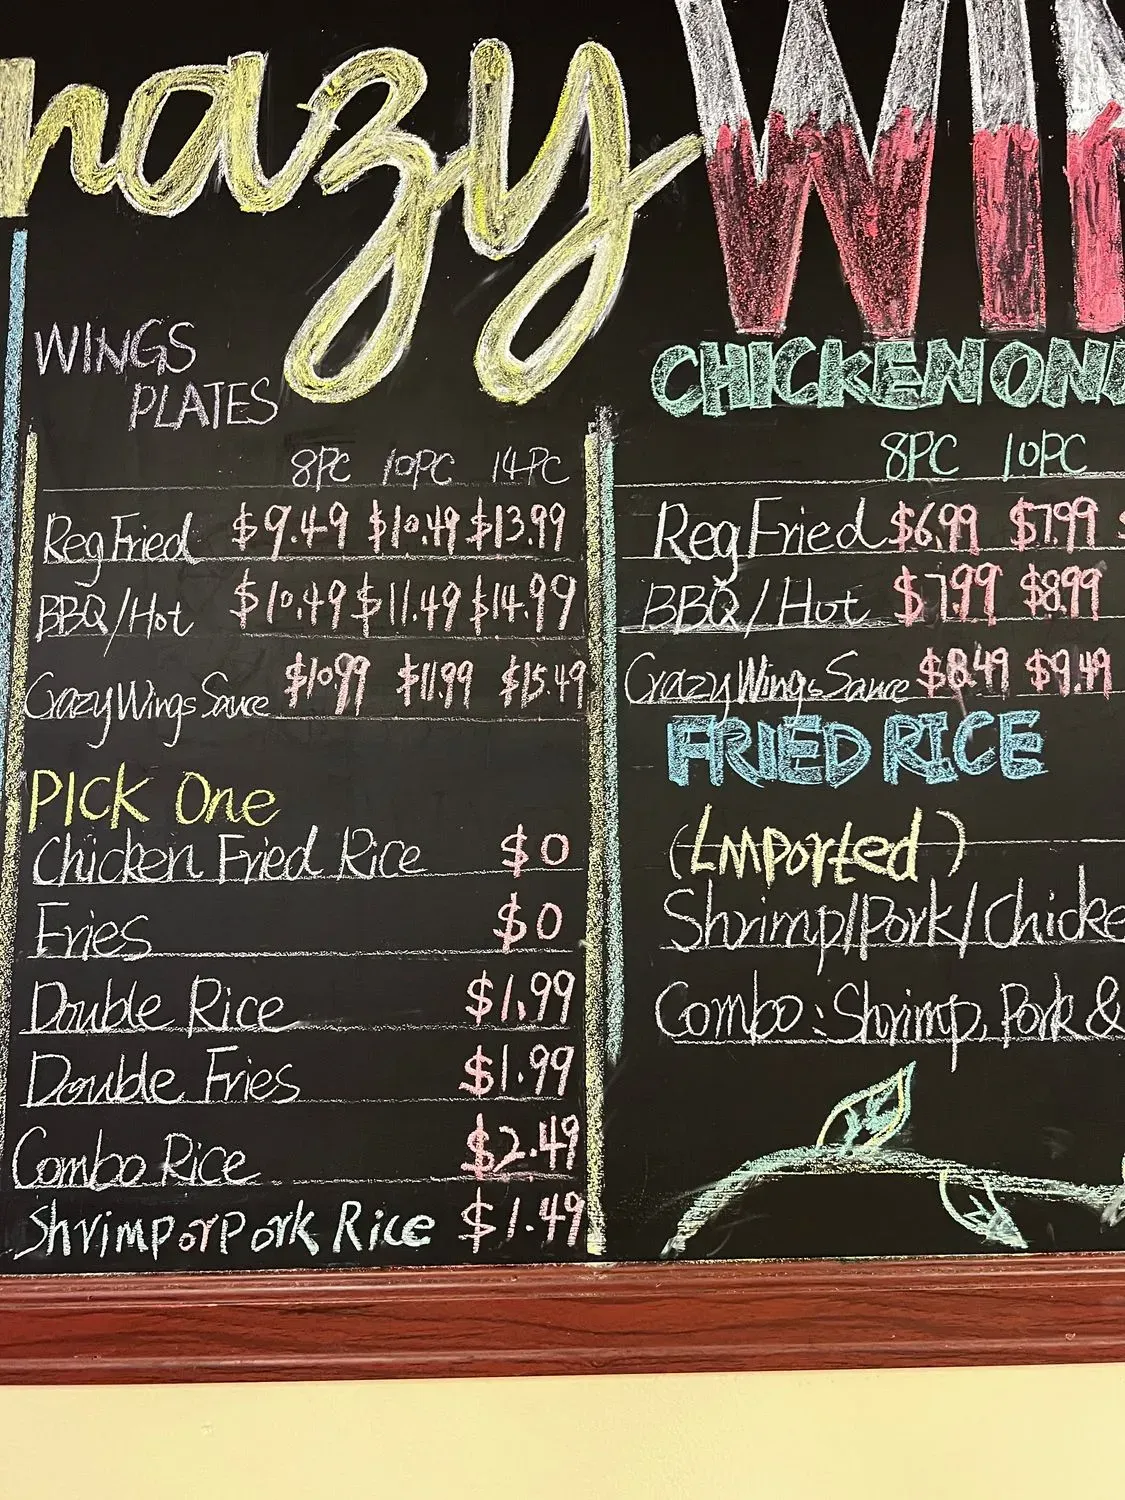 razy WIN
WINGS
PLATES
8PC 10PC 14PC
Reg Fried $9.49 $10.49 $13.99
BBQ/Hot $10.49 $11.49 $14.99
Crazy Wings Sauce $10.99 $11.99 $15.49
PICK One
Chicken Fried Rice $0
Fries $0
Double Rice $1.99
Double Fries $1.99
Combo Rice $2.49
Shrimp or Pork Rice $1.49
CHICKEN ONL
8PC 10PC
Reg Fried $6.99 $7.99 $
BBQ/Hot $7.99 $8.99
Crazy Wings Sauce $8.49 $9.49
FRIED RICE
(Imported)
Shrimp/Pork/Chicke
Combo: Shrimp, Pork &